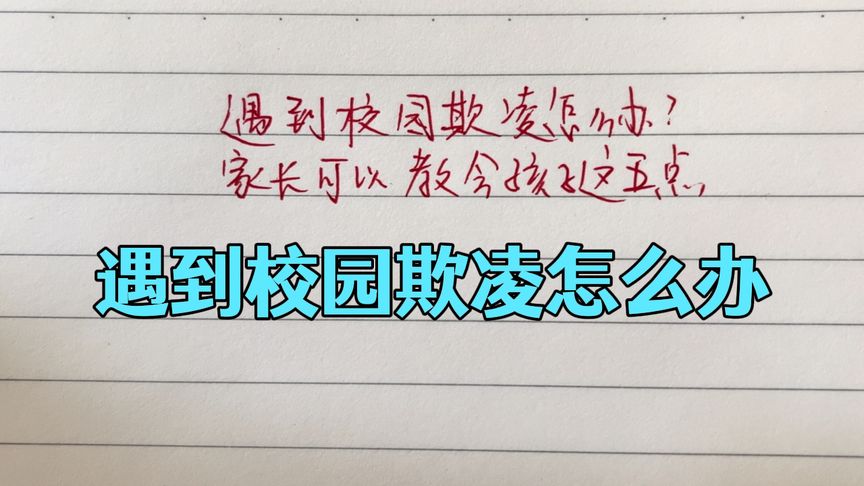 遇到校园欺凌怎么办？
家长可以教会孩子这五点
遇到校园欺凌怎么办